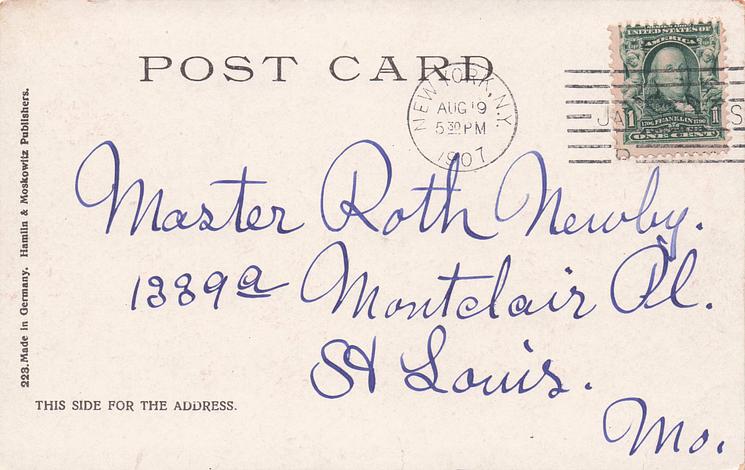 POST CARD
NEW YORK, N.Y.
AUG 19
5 30 PM
1907
UNITED STATES OF
AMERICA
1 FRANKLIN 1
ONE CENT
Master Roth Newby.
1389a Montclair Pl.
St Louis.
Mo.
THIS SIDE FOR THE ADDRESS.
223. Made in Germany. Hamlin & Moskowitz Publishers.